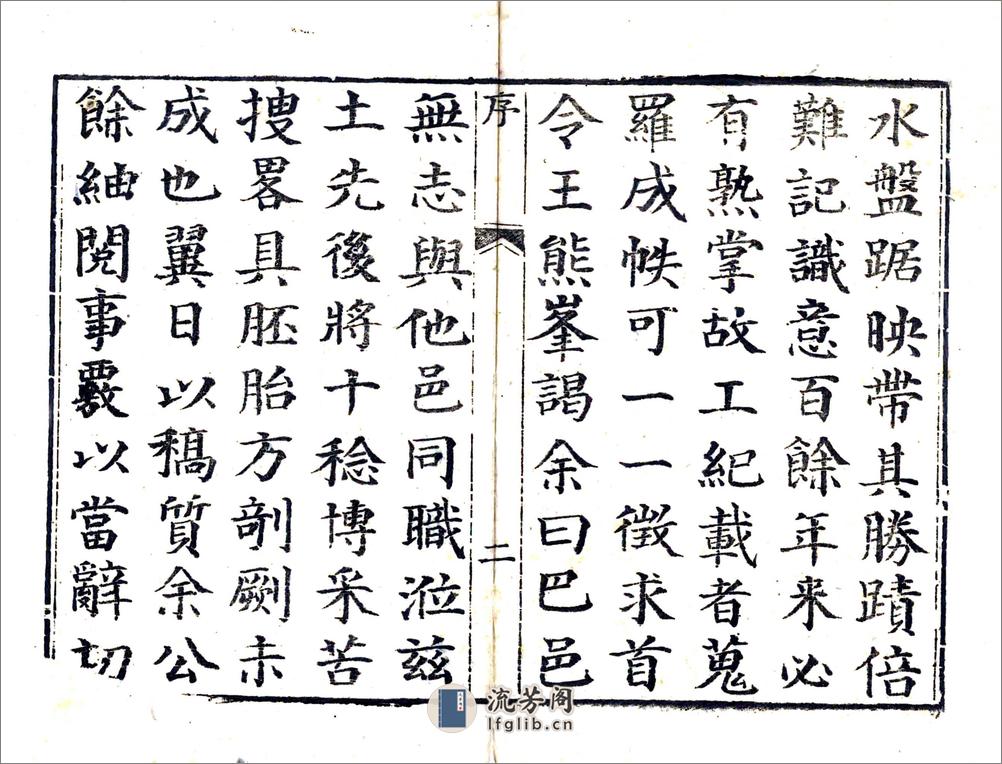 水盤踞映帶其勝蹟倍
難記識意百餘年来必
有熟掌故工紀載者蒐
羅成帙可一一徵求首
令王熊峯謁余曰巴邑
序
二
無志與他邑同職涖兹
土先後將十稔博采苦
搜畧具胚胎方剞劂未
成也翼日以稿質余公
餘紬閱事覈以當辭切
流芳阁
lfglib.cn